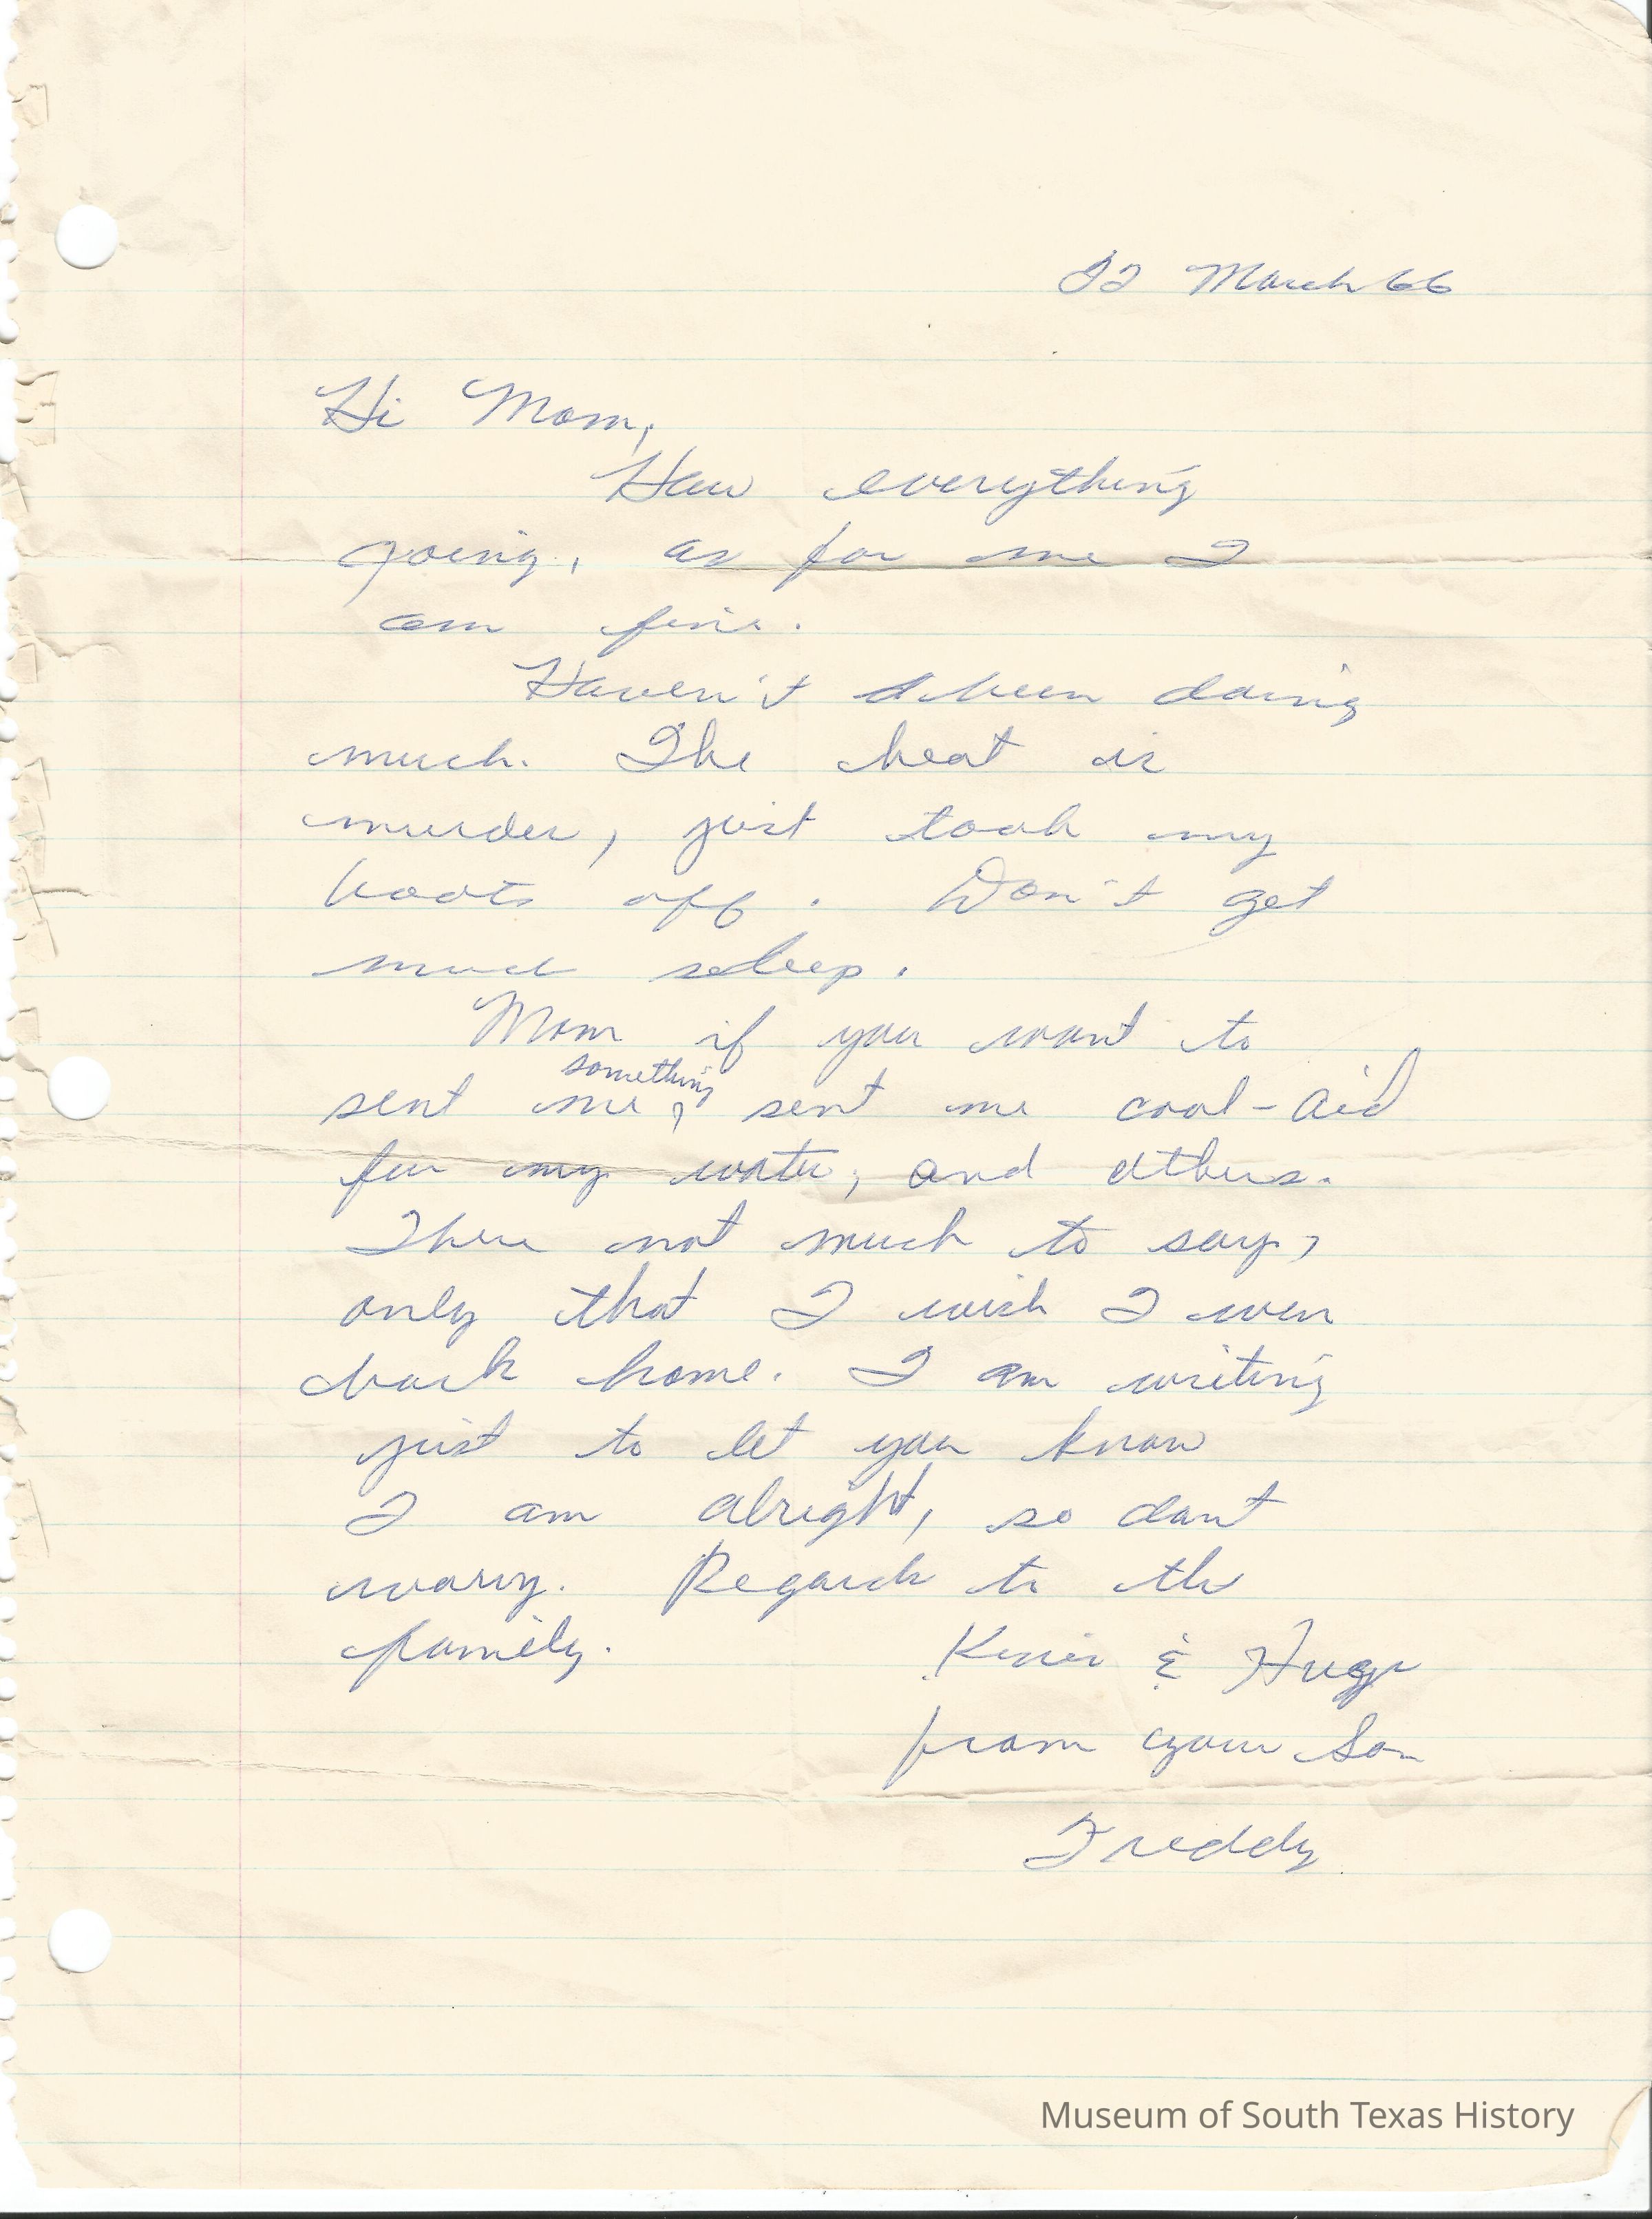 22 March 66
Hi Mom,
How everything
going, as for me I
am fine.
Haven't been doing
much. The heat is
murder, just took my
boots off. Don't get
much sleep.
Mom if you want to
something
sent me, sent me cool-aid
for my water, and others.
There not much to say,
only that I wish I were
back home. I am writing
just to let you know
I am alright, so dont
worry. Regards to the
family.
Kisses & Hugs
from your Son
Freddy
Museum of South Texas History